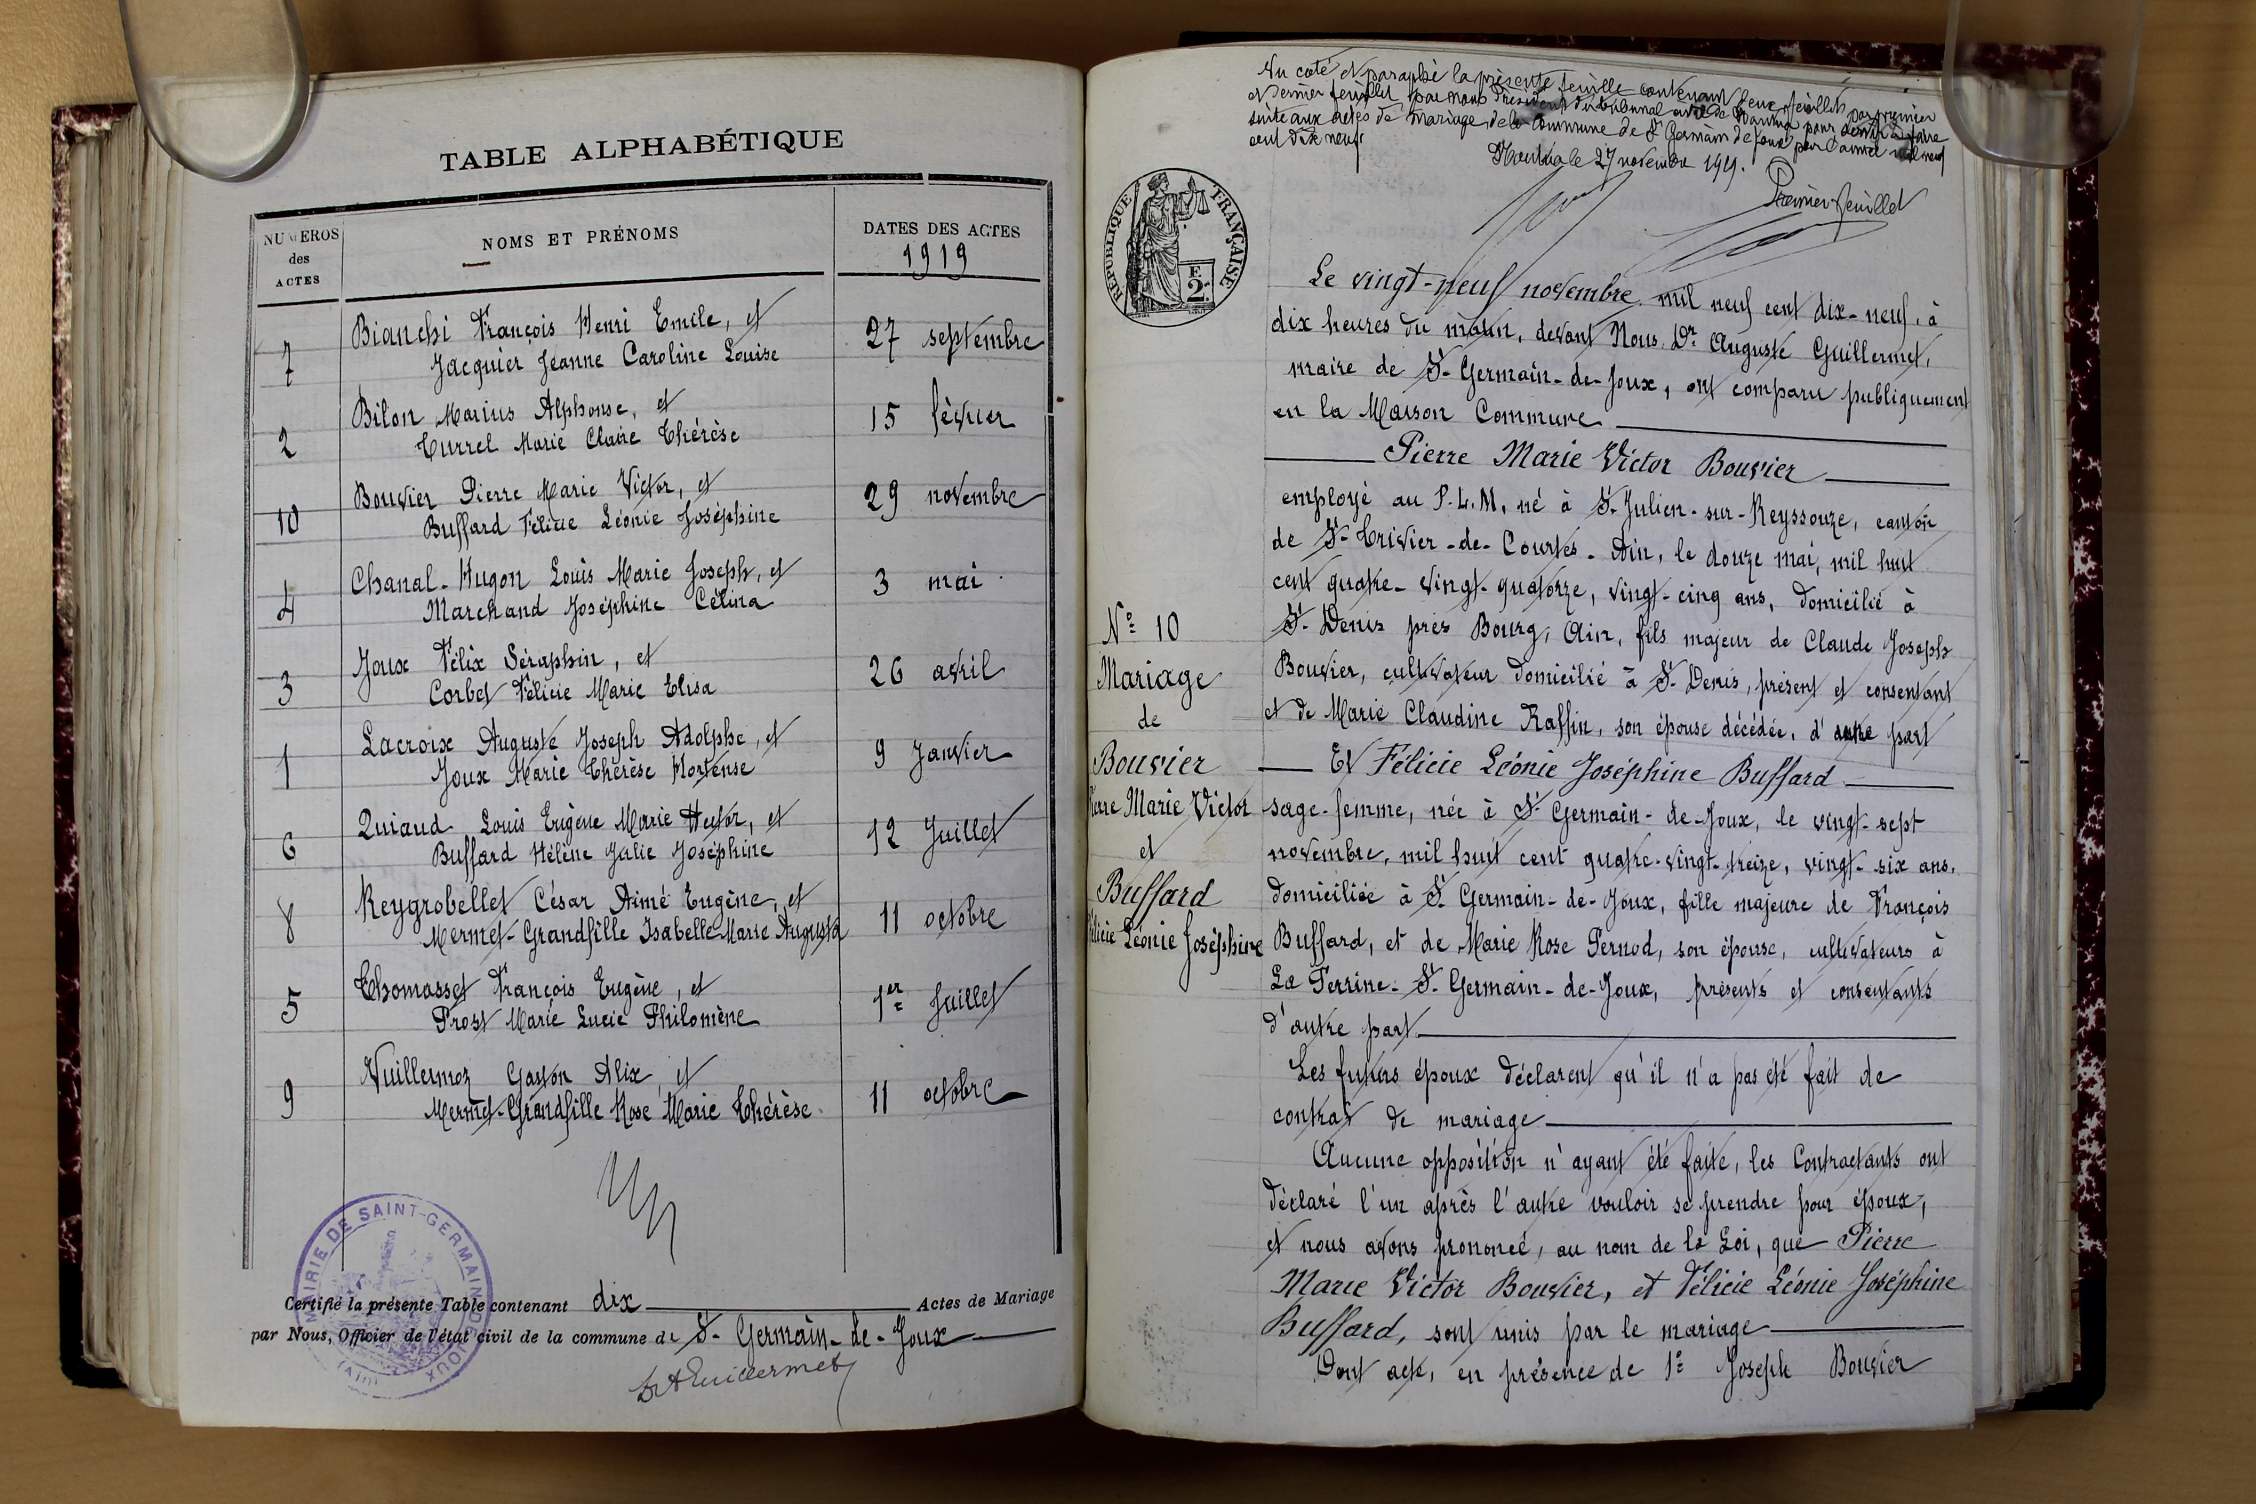 TABLE ALPHABÉTIQUE
NUMEROS des ACTES
NOMS ET PRÉNOMS
DATES DES ACTES
1919
7 Bianchi François Henri Emile, et 27 septembre
Jacquier Jeanne Caroline Louise
2 Bilon Marius Alphonse, et 15 février
Turrel Marie Claire Thérèse
10 Bouvier Pierre Marie Victor, et 29 novembre
Buffard Félicie Léonie Joséphine
4 Chanal-Hugon Louis Marie Joseph, et 3 mai
Marchand Joséphine Célina
3 Joux Félix Séraphin, et 26 avril
Corbet Félicie Marie Elisa
1 Lacroix Auguste Joseph Adolphe, et 9 Janvier
Joux Marie Thérèse Hortense
6 Quiaud Louis Eugène Marie Hector, et 12 Juillet
Buffard Hélène Julie Joséphine
8 Reygrobellet César Aimé Eugène, et 11 octobre
Mermet-Grandfille Isabelle Marie Augusta
5 Thomasset François Eugène, et 1er Juillet
Prost Marie Lucie Philomène
9 Vuillermoz Gaston Alix, et 11 octobre
Mermet-Grandfille Rose Marie Thérèse
Certifié la présente Table contenant dix Actes de Mariage
par Nous, Officier de l'état civil de la commune de St-Germain-de-Joux
Dr A Guillermet
MAIRIE DE SAINT-GERMAIN-DE-JOUX
(AIN)
Vu coté et paraphé la présente feuille contenant deux feuillets par premier
et dernier feuillet par nous Président du tribunal civil de Nantua pour servir à faire
suite aux actes de mariage de la Commune de St Germain de Joux pour l'année mil neuf
cent dix neuf
Nantua le 27 novembre 1919.
Premier feuillet
RÉPUBLIQUE FRANÇAISE
E.
2.
Le vingt-neuf novembre mil neuf cent dix-neuf, à
dix heures du matin, devant Nous Dr Auguste Guillermet,
maire de St-Germain-de-Joux, ont comparu publiquement
en la Maison Commune
Pierre Marie Victor Bouvier
employé au P.L.M, né à St-Julien-sur-Reyssouze, canton
de St-Trivier-de-Courtes-Ain, le douze mai, mil huit
cent quatre-vingt-quatorze, vingt-cinq ans, domicilié à
St-Denis près Bourg, Ain, fils majeur de Claude Joseph
Bouvier, cultivateur domicilié à St-Denis, présent et consentant
et de Marie Claudine Raffin, son épouse décédée, d'autre part
Et Félicie Léonie Joséphine Buffard
sage-femme, née à St Germain-de-Joux, le vingt-sept
novembre, mil huit cent quatre-vingt-treize, vingt-six ans,
domiciliée à St Germain-de-Joux, fille majeure de François
Buffard, et de Marie Rose Pernod, son épouse, cultivateurs à
La Perrine-St-Germain-de-Joux, présents et consentants
d'autre part
Les futurs époux déclarent qu'il n'a pas été fait de
contrat de mariage
Aucune opposition n'ayant été faite, les Contractants ont
déclaré l'un après l'autre vouloir se prendre pour époux,
et nous avons prononcé, au nom de la Loi, que Pierre
Marie Victor Bouvier, et Félicie Léonie Joséphine
Buffard, sont unis par le mariage
Dont acte, en présence de 1° Joseph Bouvier
N° 10
Mariage
de
Bouvier
Pierre Marie Victor
et
Buffard
Félicie Léonie Joséphine